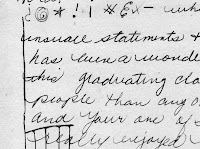 ¿@*! 1 * Ex- wh
insuale statements +
has been a wonde
this graduating cla
people than any o
and your one of
really enjoyed